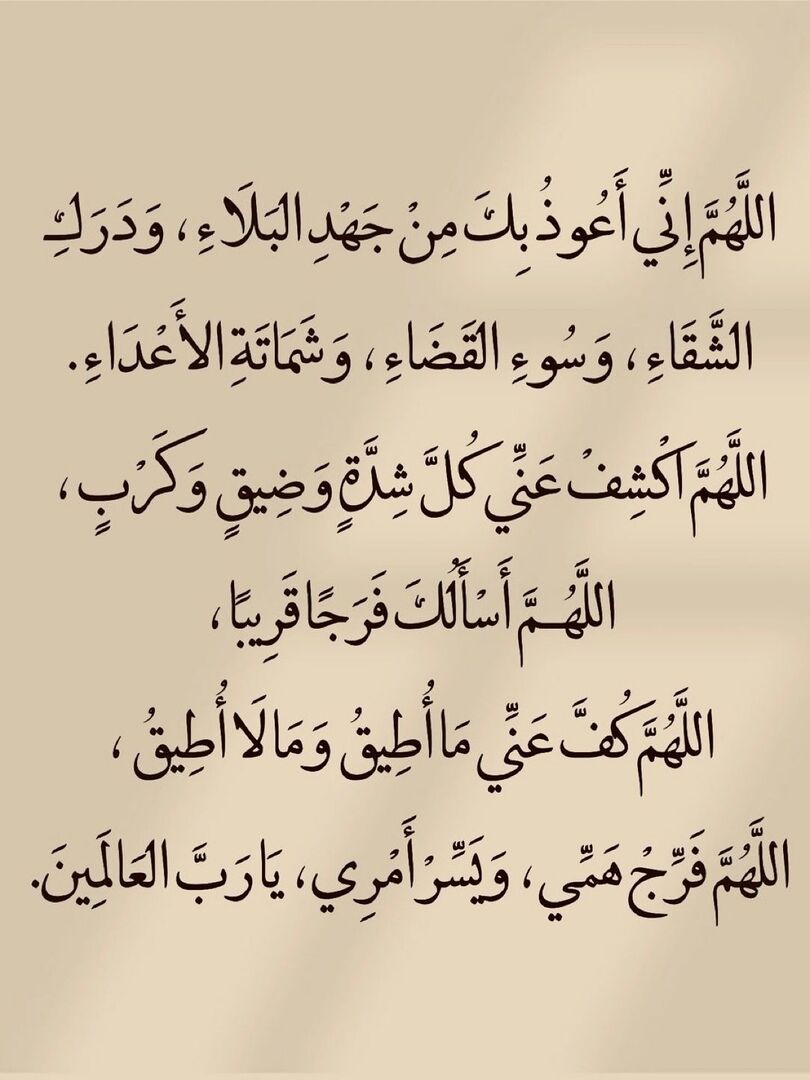 اللَّهُمَّ إِنِّي أَعُوذُ بِكَ مِنْ جَهْدِ البَلَاءِ، وَدَرَكِ
الشَّقَاءِ، وَسُوءِ القَضَاءِ، وَشَمَاتَةِ الأَعْدَاءِ.
اللَّهُمَّ اكْشِفْ عَنِّي كُلَّ شِدَّةٍ وَضِيقٍ وَكَرْبٍ،
اللَّهُـمَّ أَسْأَلُكَ فَرَجًا قَرِيبًا،
اللَّهُمَّ كُفَّ عَنِّي مَا أُطِيقُ وَمَا لَا أُطِيقُ ،
اللَّهُمَّ فَرِّجْ هَمِّي، وَيَسِّرْ أَمْرِي، يَا رَبَّ العَالَمِينَ.